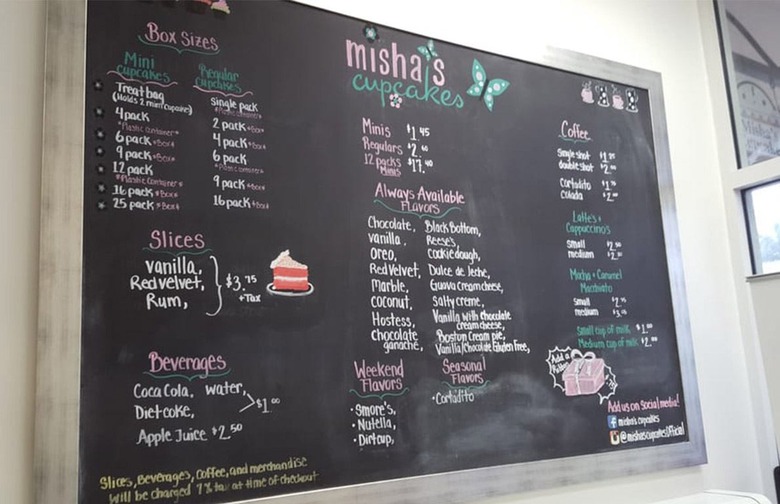 misha's
cupcakes
Box Sizes
Mini
cupcakes
Treat bag
(Holds 2 mini cupcake)
4 pack
*Plastic container*
6 pack *Box*
9 pack *Box*
12 pack
*Plastic Container*
16 pack *Box*
25 pack *Box*
Regular
cupcakes
single pack
2 pack *Box*
4 pack *Box*
6 pack
9 pack *Box*
16 pack *Box*
Slices
vanilla,
Red velvet,
Rum,
$3.75
+Tax
Beverages
Coca Cola, water,
Diet coke,
$1.00
Apple Juice $2.50
Slices, Beverages, Coffee, and merchandise
will be charged 7% tax at time of checkout
Minis $1.45
Regulars
12 packs
Minis
Always Available
Flavors
Chocolate,
vanilla,
Oreo,
Red Velvet,
Marble,
coconut,
Hostess,
Chocolate
ganache,
Black Bottom,
Reese's,
cookie dough,
Dulce de leche,
Guava cream cheese,
Salty creme,
Vanilla with chocolate
cream cheese,
Boston Cream pie,
Vanilla/Chocolate Gluten Free,
Weekend
Flavors
• Smore's,
• Nutella,
• Dirt cup,
Seasonal
Flavors
• Cortadito
Coffee
Single shot
double shot
Cortadito
Colada
Latte's +
Cappuccino's
Small
medium
Mocha + Caramel
Macchiato
Small
medium
Small cup of milk $1.00
Medium cup of milk $2.00
Add a
Add us on Social media!
misha's cupcakes
@mishascupcakesofficial